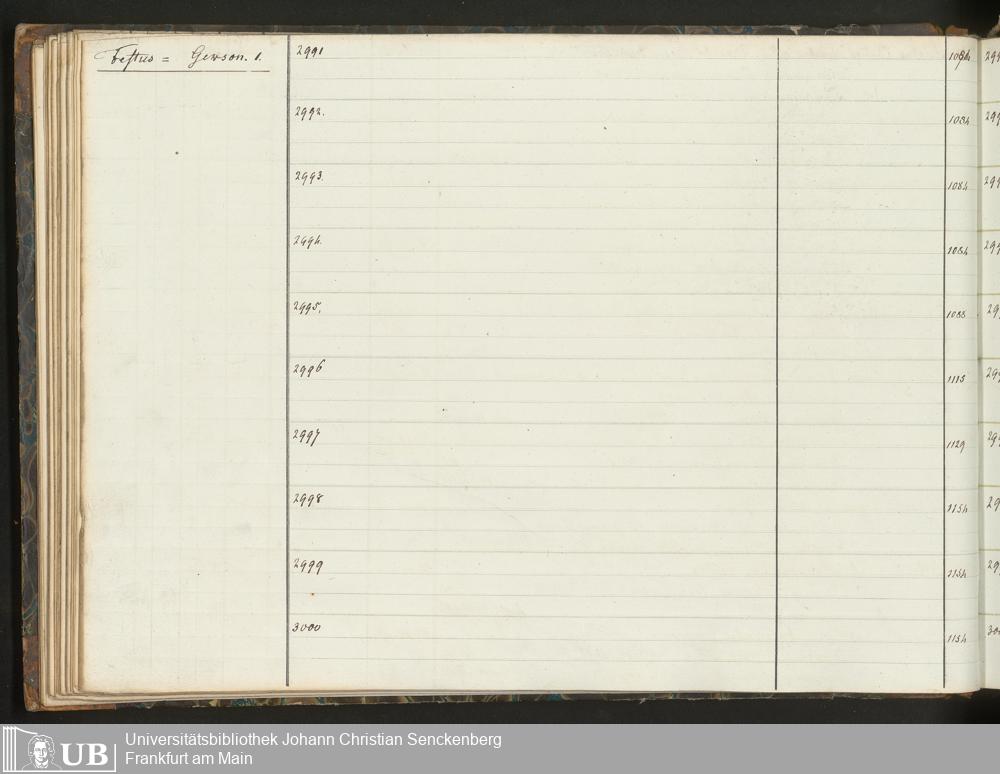 Festus = Gerson. 1.
2991 1084 299
2992. 1084 299
2993. 1084 299
2994. 1084 299
2995. 1088 299
2996 1115 299
2997 1129 299
2998 1154 299
2999 1154 299
3000 1154 300
UB Universitätsbibliothek Johann Christian Senckenberg
Frankfurt am Main